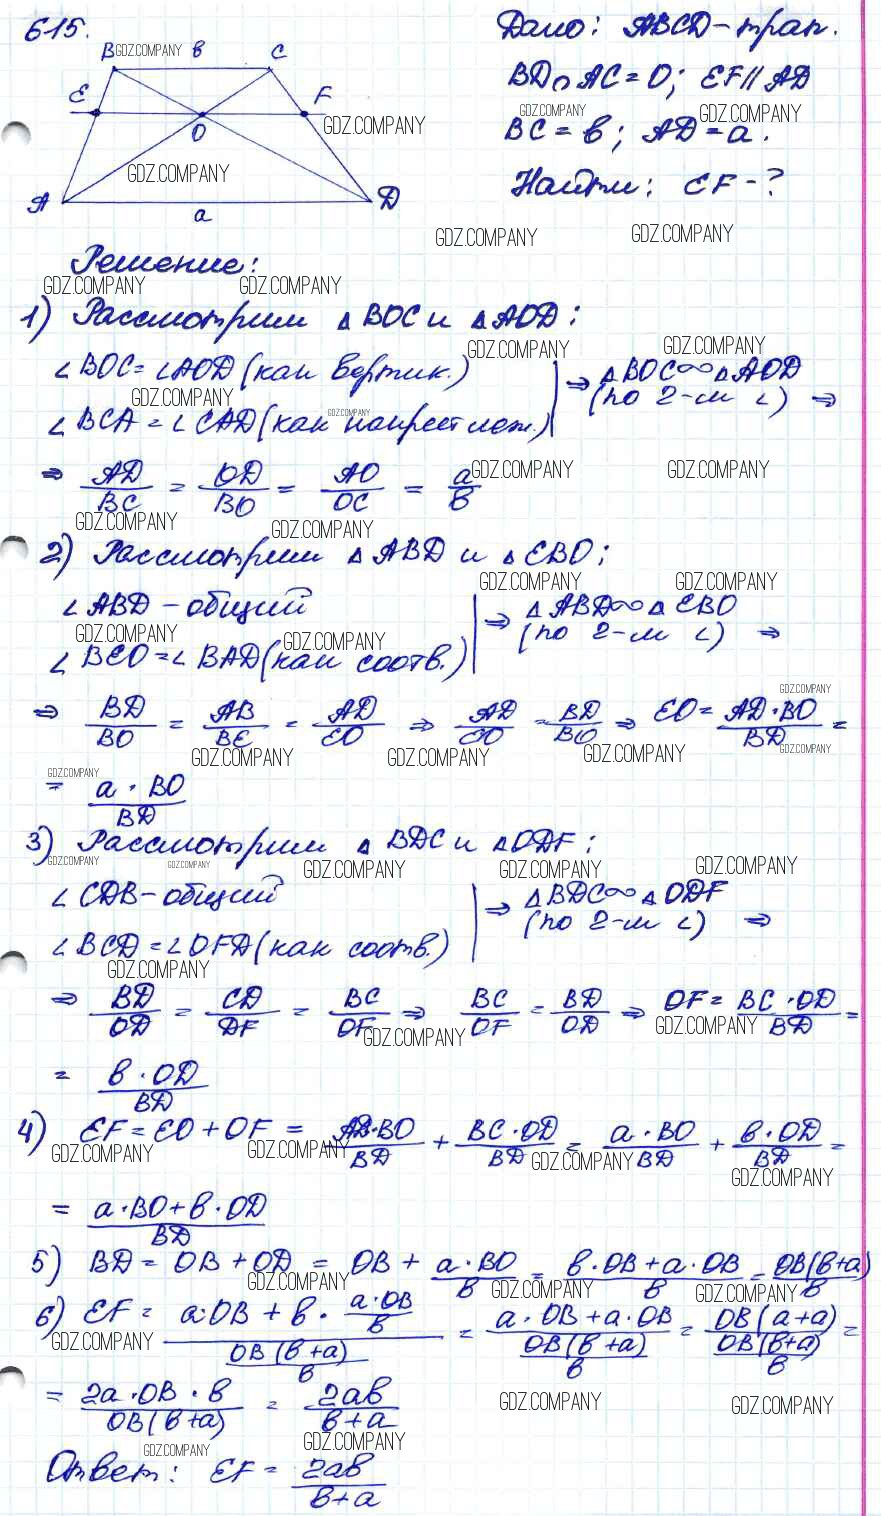 615.
B в C
E F
O
A a D
Дано: ABCD – трап.
BD ∩ AC = O; EF ∥ AD
BC = в; AD = a.
Найти: EF – ?
GDZ.COMPANY
Решение:
1) Рассмотрим △BOC и △AOD:
∠BOC = ∠AOD (как вертик.) | ⇒ △BOC ∾ △AOD
∠BCA = ∠CAD (как накрест леж.) | (по 2-м ∠) ⇒
⇒ AD/BC = OD/BO = AO/OC = a/в
2) Рассмотрим △ABD и △EBO:
∠ABD – общий | ⇒ △ABD ∾ △EBO
∠BEO = ∠BAD (как соотв.) | (по 2-м ∠) ⇒
⇒ BD/BO = AB/BE = AD/EO ⇒ AD/EO = BD/BO ⇒ EO = AD · BO/BD =
= a · BO/BD
3) Рассмотрим △BDC и △ODF:
∠CDB – общий | ⇒ △BDC ∾ △ODF
∠BCD = ∠OFD (как соотв.) | (по 2-м ∠) ⇒
⇒ BD/OD = CD/DF = BC/OF ⇒ BC/OF = BD/OD ⇒ OF = BC · OD/BD =
= в · OD/BD
4) EF = EO + OF = AD·BO/BD + BC · OD/BD = a · BO/BD + в · OD/BD =
= (a · BO + в · OD)/BD
5) BD = OB + OD = OB + a · BO/в = (в · OB + a · OB)/в = OB(в+a)/в
6) EF = (a·OB + в · a·OB/в)/(OB(в+a)/в) = (a · OB + a · OB)/(OB(в+a)/в) = OB(a+a)/(OB(в+a)/в) =
= 2a · OB · в/OB(в+a) = 2aв/(в+a)
Ответ: EF = 2aв/(в+a)